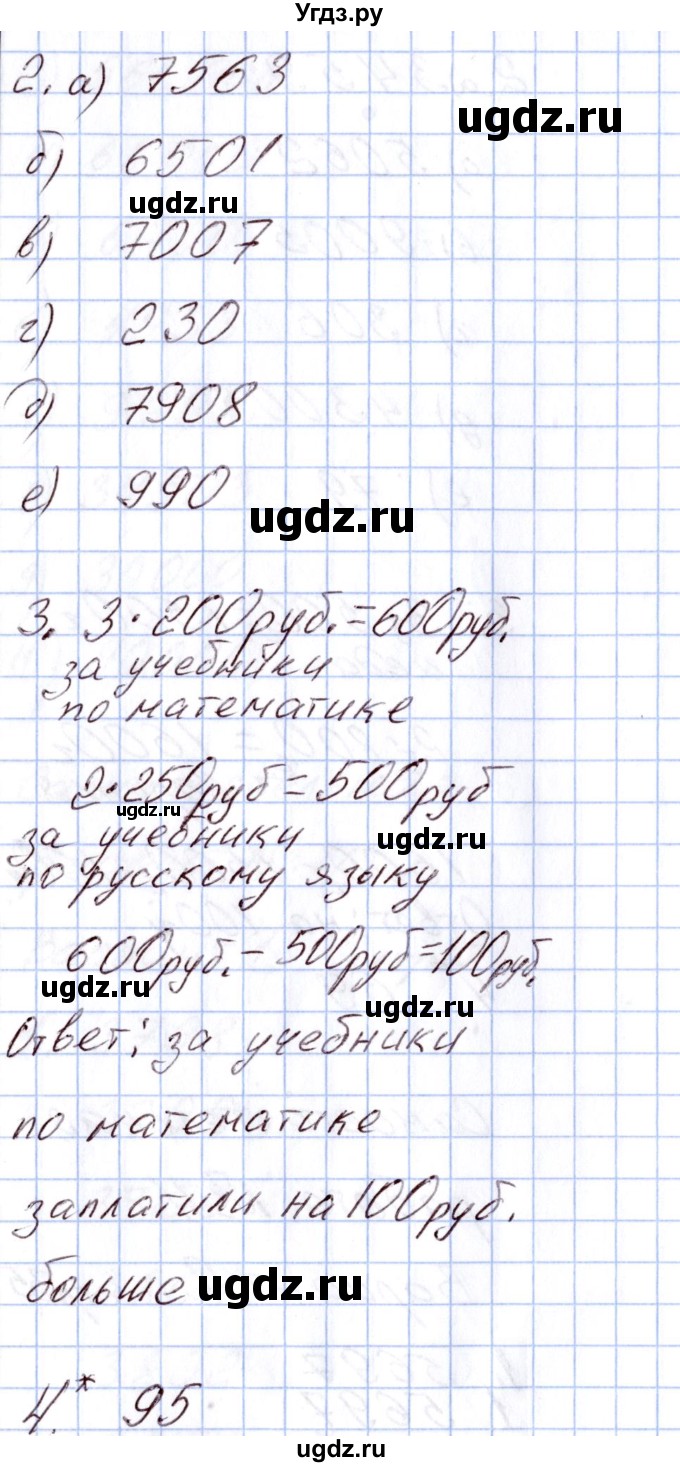 Угдз.ру
2. а) 7563
ugdz.ru
б) 6501
ugdz.ru
в) 7007
г) 230
д) 7908
е) 990
ugdz.ru
3. 3·200руб.=600руб.
за учебники
по математике
2·250руб=500руб
ugdz.ru
за учебники
ugdz.ru
по русскому языку
600руб.-500руб=100руб.
ugdz.ru
ugdz.ru
Ответ: за учебники
по математике
заплатили на 100руб.
больше
ugdz.ru
4.* 95
ugdz.ru